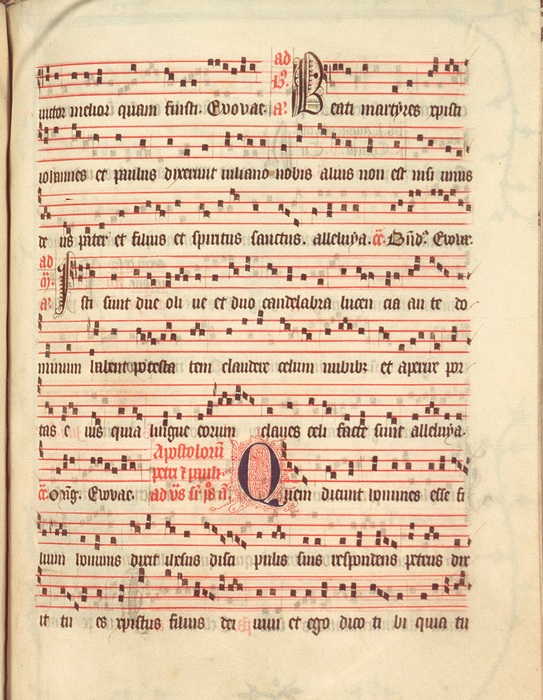 melior quam fuisti. Evovae. ad
B. a. Beati martyres xpisti
iohannes et paulus dixerunt iuliano nobis alius non est nisi unus
de us pater et filius et spiritus sanctus. alleluya. Evovae.
ad
a. Isti sunt due oli ve et duo candelabra lucen cia an te do
minum habent potesta tem claudere celum nubibus et aperire por
tas e ius quia lingue eorum claves celi facte sunt alleluya.
Evovae. Apostolorum
petri et pauli
ad a. Quem dicunt homines esse fi
lium hominis dixit ihesus disci pulis suis respondens petrus dix
it tu es xpistus filius dei vivi et ego dico ti bi quia tu